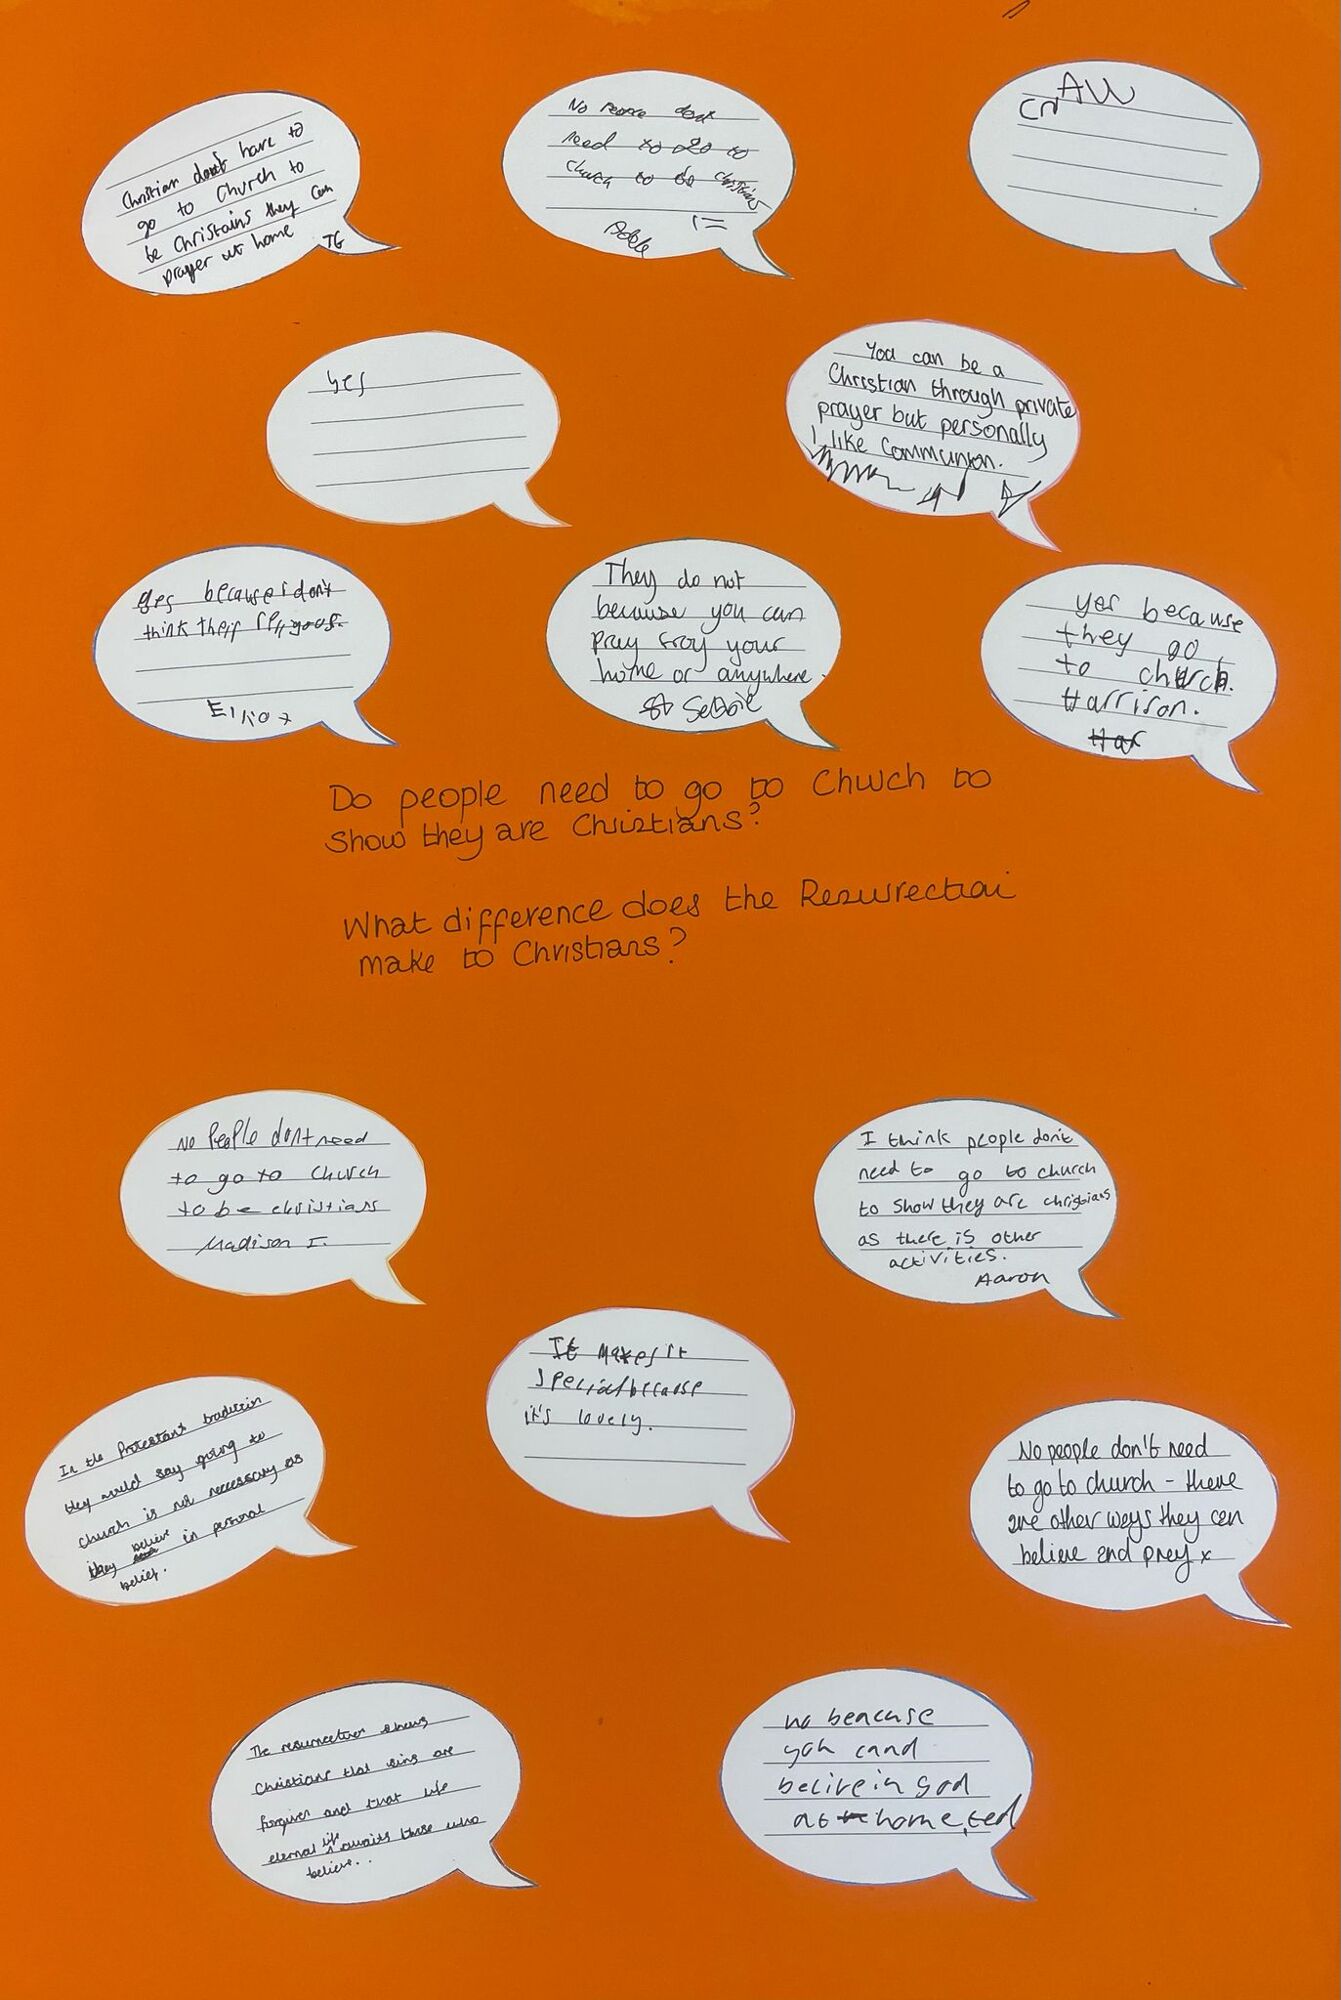 Christian don't have to
go to Church to
be Christains they can
prayer at home TG
No people dont
need to go to
church to be christians
Adele
CN AW
yes
You can be a
Christian through private
prayer but personally
I like Communion.
yes because i don't
think their religous.
Elliot
They do not
because you can
pray froy your
home or anywhere.
yes because
they go
to church.
Harrison.
Har
Do people need to go to Church to
show they are Christians?
What difference does the Resurrection
make to Christians?
No People dont need
to go to Church
to be christians
Madison I.
I think people don't
need to go to church
to show they are christians
as there is other
activities.
Aaron
It makes it
special because
it's lovely.
In the Protestant tradition
they would say going to
church is not necessary as
they believe in personal
belief.
No people don't need
to go to church - there
are other ways they can
believe and prey x
The resurrection shows
Christians that sins are
forgiven and that life
eternal life awaits those who
believe..
no beacuse
yoh cand
belive in god
at home, ted